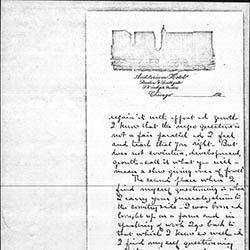 Auditorium Hotel
Chicago
regain it with effect and growth.
I know that the negro question is
not a fair parallel and I feel
and trust that you're right. But
does not evolution, development,
growth - call it what you will -
mean a slow giving over of
The second place where I
find myself questioning is when
I carry your generalization to
the country side - I was born and
brought up on a farm and in
speaking of work I go back to
that which I knew as well and
I find myself questioning